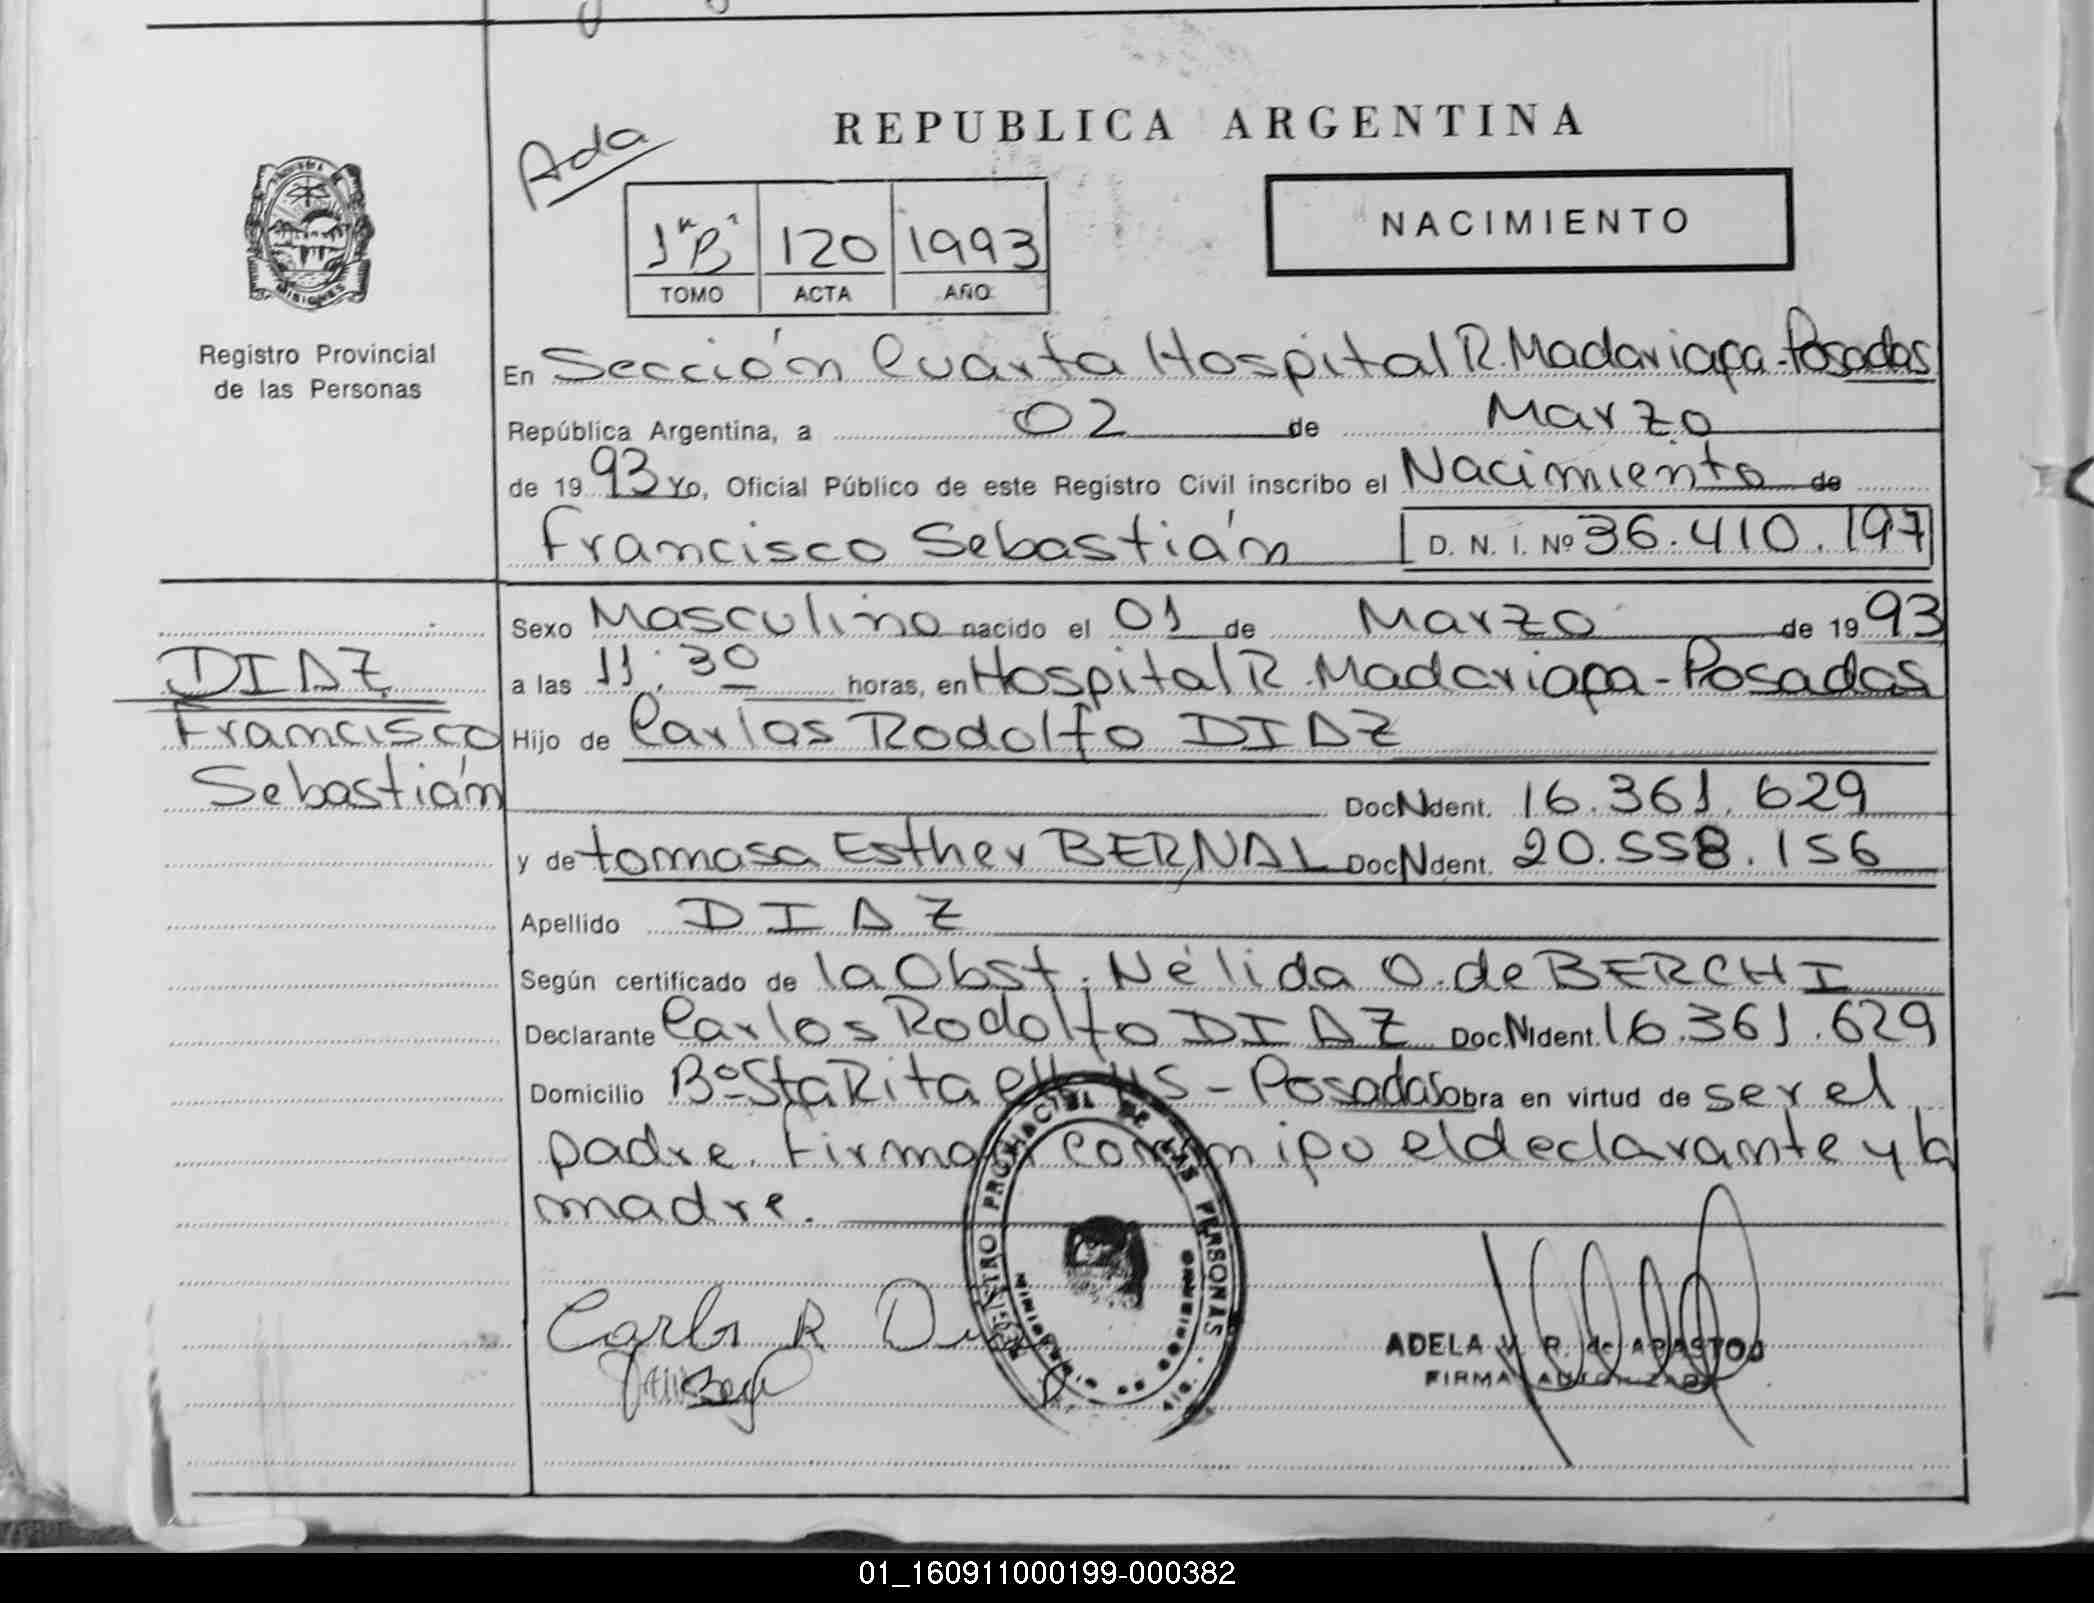 REPUBLICA ARGENTINA
Ada
1 "B" 120 1993
TOMO ACTA AÑO
NACIMIENTO
MISIONES
Registro Provincial
de las Personas
En Sección Cuarta Hospital R. Madariaga - Posadas
República Argentina, a 02 de Marzo
de 1993 Yo, Oficial Público de este Registro Civil inscribo el Nacimiento de
Francisco Sebastián D. N. I. Nº 36.410.197
Sexo Masculino nacido el 01 de Marzo de 1993
a las 11:30 horas, en Hospital R. Madariaga - Posadas
DIAZ
Francisco
Sebastián
Hijo de Carlos Rodolfo DIAZ
Doc N Ident. 16.361.629
y de tomasa Esther BERNAL Doc N Ident. 20.558.156
Apellido DIAZ
Según certificado de la Obst. Nélida O. de BERCHI
Declarante Carlos Rodolfo DIAZ Doc. N Ident. 16.361.629
Domicilio Bº Sta Rita - Posadas Obra en virtud de ser el
padre. Firman conmigo el declarante y la
madre.
REGISTRO PROVINCIAL DE LAS PERSONAS
Carlos R Diaz
ADELA V. R. de
FIRMA AUTORIZADA
01_160911000199-000382